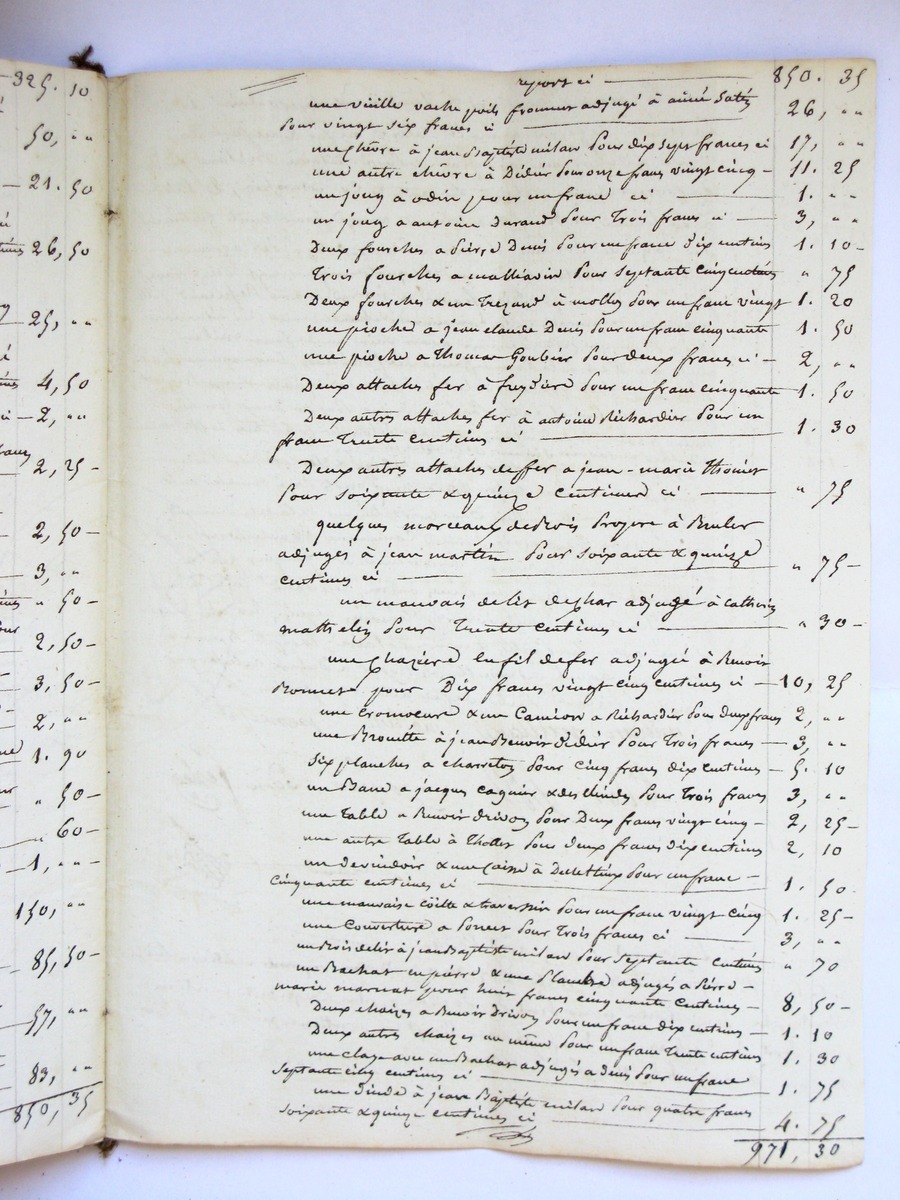 325. 10
50, " "
21. 50
26, 50
25, " "
4, 50
2, " "
2, 25
2, 50
3, " "
" 50
2, 50
3, 50
2, " "
1. 90
" 50
" 60
1, " "
150, " "
85, 50
57, " "
83, " "
850, 35
report ci 850. 35
une vieille vache poils froment adjugé à aimé
pour vingt six francs ci 26, " "
une chèvre à jean Baptiste milan pour dix sept francs ci 17, " "
une autre chèvre à Didier pour onze francs vingt cinq 11. 25
un joug à odin pour un franc ci 1. " "
un joug a antoine Durand pour Trois francs ci 3, " "
Deux fourches a pierre Denis pour un franc dix centimes 1. 10
Trois fourches a pour septante cinq centimes " 75
Deux fourches & un à pour un franc vingt 1. 20
une pioche a jean claude Denis pour un franc cinquante 1. 50
une pioche a Thomas Goubier pour deux francs ci 2, " "
Deux attaches fer à pour un franc cinquante 1. 50
Deux autres attaches fer à antoine Richardier pour un
franc Trente centimes ci 1. 30
Deux autres attaches de fer a jean-marie Thoinet
pour soixante & quinze centimes ci " 75
quelques morceaux de Bois propre à Bruler
adjugés à jean martin pour soixante & quinze
centimes ci " 75
un mauvais de lit de char adjugé à
pour Trente centimes ci " 30
une en fil de fer adjugé à Benoit
Bonnet pour Dix francs vingt cinq centimes ci 10, 25
une & un Camion a Richardier pour deux francs 2, " "
une Brouette à jean Benoit Didier pour Trois francs 3, " "
six planches a charreton pour cinq francs dix centimes 5. 10
un Banc a jacques & des pour Trois francs 3, " "
une Table a Benoit drivon pour Deux francs vingt cinq 2, 25
une autre Table à Thollet pour deux francs dix centimes 2, 10
un devindoir & une caisse à pour un franc
cinquante centimes ci 1. 50
une mauvaise & traversin pour un franc vingt cinq 1. 25
une Couverture a pour Trois francs ci 3, " "
un Bois de lit à jean Baptiste milan pour septante centimes " 70
un Bachat en pierre & une planche adjugés a pierre
marie pour huit francs cinquante centimes 8, 50
Deux chaizes a Benoit Drivon pour un franc dix centimes 1. 10
Deux autres chaizes au même pour un franc Trente centimes 1. 30
une avec un Bachat adjugés a denis pour un franc
septante cinq centimes ci 1. 75
une Dinde à jean Baptiste milan pour quatre francs
soixante & quinze centimes ci 4. 75
971, 30